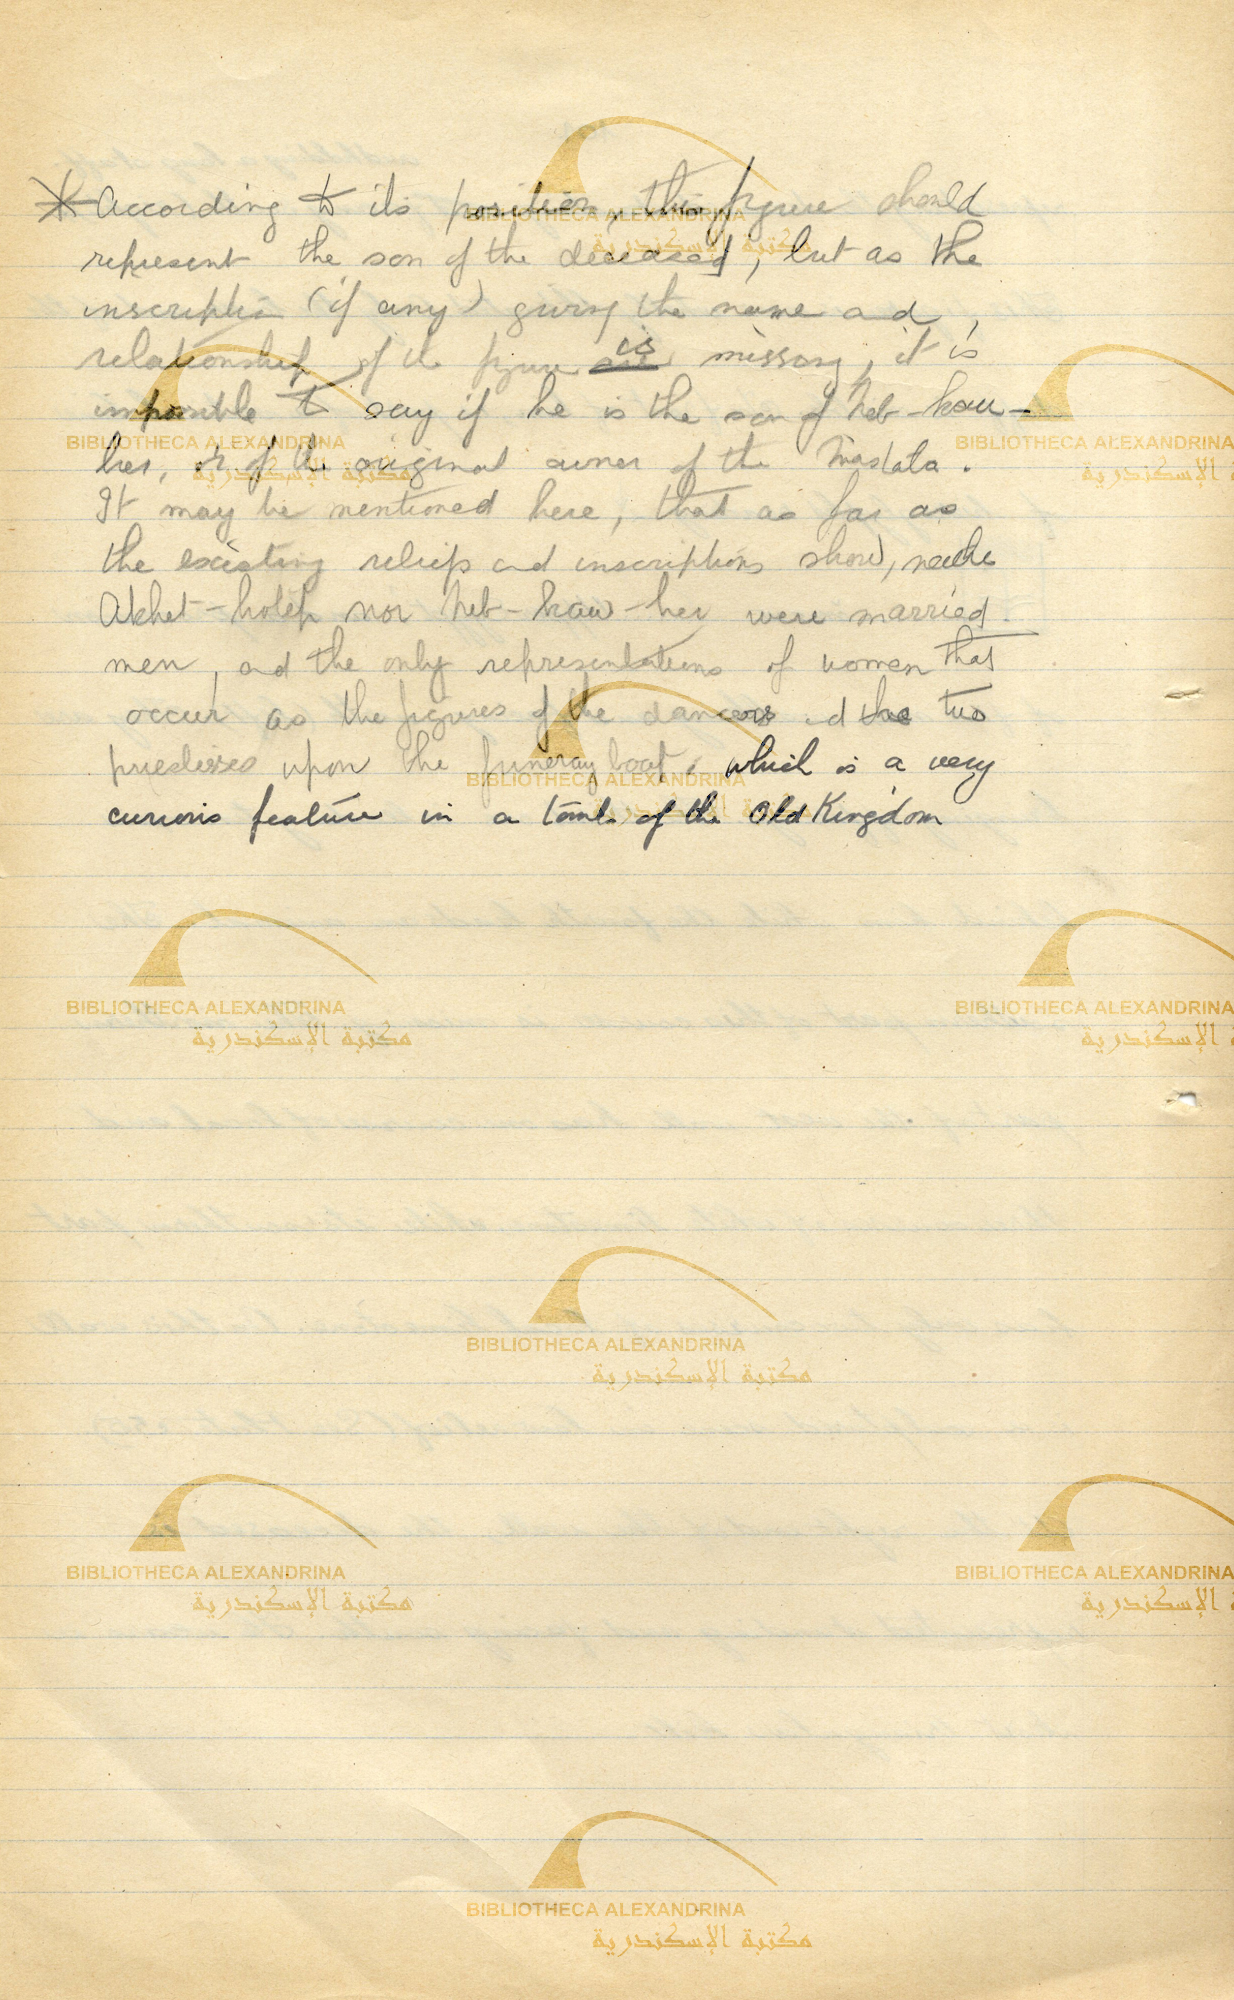 * According to its position, this figure should
represent the son of the deceased, but as the
inscription (if any) giving the name and
relationship of the figure are is missing, it is
impossible to say if he is the son of Neb-kaw-
her, or of the original owner of the Mastaba.
It may be mentioned here, that as far as
the existing reliefs and inscriptions show, neither
Akhet-hotep nor Neb-kaw-her were married
men, and the only representations of women that
occur as the figures of the dancers and the two
priestesses upon the funeray boat, which is a very
curious feature in a tomb of the Old Kingdom
BIBLIOTHECA ALEXANDRINA
مكتبة الإسكندرية
BIBLIOTHECA ALEXANDRINA
مكتبة الإسكندرية
BIBLIOTHECA ALEXANDRINA
مكتبة الإسكندرية
BIBLIOTHECA ALEXANDRINA
مكتبة الإسكندرية
BIBLIOTHECA ALEXANDRINA
مكتبة الإسكندرية
BIBLIOTHECA ALEXANDRINA
مكتبة الإسكندرية
BIBLIOTHECA ALEXANDRINA
مكتبة الإسكندرية
BIBLIOTHECA ALEXANDRINA
مكتبة الإسكندرية
BIBLIOTHECA ALEXANDRINA
مكتبة الإسكندرية
BIBLIOTHECA ALEXANDRINA
مكتبة الإسكندرية